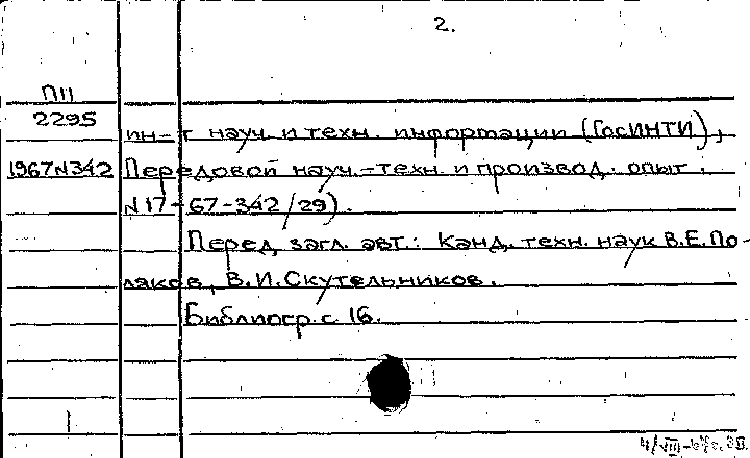 2.
П11
2295
1967 N342
ин-т науч. и техн. информации (ГосИНТИ),
Передовой науч.-техн. и производ. опыт.
N 17-67-342/29).
Перед загл. авт.: Канд. техн. наук В.Е. По-
ляков, В.И. Скутельников.
Библиогр. с. 16.